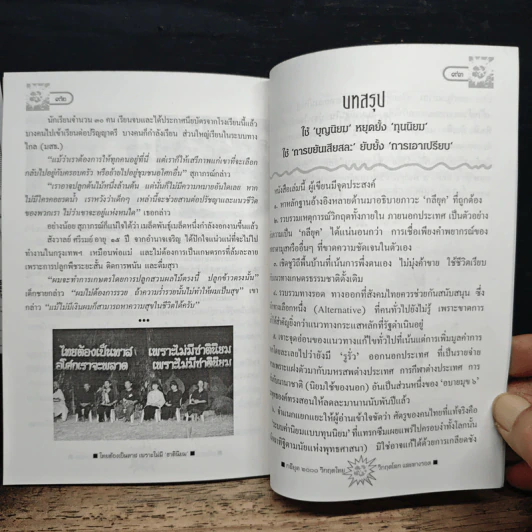 นักเรียนจำนวน ๓๐ คน เรียนจบและได้ประกาศนียบัตรจากโรงเรียนนี้แล้ว
บางคนไปเข้าเรียนต่อปริญญาตรี บางคนก็กำลังเรียน ส่วนใหญ่เรียนในระบบทาง
ไกล (มสธ.)
"แม้ว่าเราต้องการให้ลูกคนอยู่ที่นี่ แต่เราก็ให้เสรีภาพแก่เขาที่จะเลือก
กลับไปอยู่กับครอบครัว หรือย้ายไปอยู่ชุมชนอโศกอื่น" สุภาภรณ์กล่าว
"เราอาจปลูกต้นไม้หนึ่งล้านต้น แต่นั่นก็ไม่มีความหมายอันใดเลย หาก
ไม่มีใครคอยรดน้ำ เราหวังว่าเด็กๆ เหล่านี้จะช่วยสานต่อปรัชญาและแนวชีวิต
ของพวกเรา ไม่ว่าเขาจะอยู่แห่งหนใด" เธอกล่าว
อย่างน้อย สุภาภรณ์ก็แน่ใจได้ว่า เมล็ดพันธุ์เมล็ดหนึ่งกำลังงอกงามขึ้นแล้ว
สังวาลย์ ศรีเมย์ อายุ ๑๕ ปี จากอำนาจเจริญ ได้ปักใจแน่วแน่ที่จะไม่ไป
ทำงานในกรุงเทพฯ เหมือนพ่อแม่ และไม่ต้องการเป็นเกษตรกรที่ล้มละลาย
เพราะการปลูกพืชระยะสั้น ติดการพนัน และดื่มสุรา
"ผมจะทำการเกษตรโดยการปลูกสวนผลไม้ตรงนี้ ปลูกข้าวตรงนั้น"
เด็กชายกล่าว "ผมไม่ต้องการรวย ถ้าความร่ำรวยนั้นไม่ทำให้ผมเป็นสุข" เขา
กล่าว "แม้ไม่มีเงินผมก็สามารถหาความสุขในชีวิตได้ครับ"
•••
ไทยต้องเป็นทาส เพราะไม่มีชาตินิยม
อโศกเราจะพลาด เพราะไม่มีชาตินิยม
ไทยต้องเป็นทาส เพราะไม่มี ชาตินิยม
บทสรุป
ใช้ 'บุญนิยม' หยุดยั้ง 'ทุนนิยม'
ใช้ 'การขยันเสียสละ' ยับยั้ง 'การเอาเปรียบ'
หนังสือเล่มนี้ ผู้เขียนมีจุดประสงค์
๑. หาหลักฐานอ้างอิงหลายด้านมาอธิบายภาวะ 'กลียุค' ที่ถูกต้อง
๒. รวบรวมเหตุการณ์วิกฤตทั้งภายใน ภายนอกประเทศ เป็นตัวอย่าง
ความเป็น 'กลียุค' ได้แน่นอนกว่า การเชื่อเพียงคำพยากรณ์ของ
ที่ขาดความชัดเจนในตัวเอง
เชิดชูวิถีพื้นบ้านที่เน้นการพึ่งตนเอง ไม่มุ่งค้าขาย ใช้ชีวิตเรียบ
รวบรวมทางรอด ทางออกที่สังคมไทยควรช่วยกันสนับสนุน ซึ่ง
(Alternative) ที่คนทั่วไปยังไม่รู้ เพราะขาดการ
กว่าแนวทางกระแสหลักที่รัฐดำเนินอยู่
เจาะจุดอ่อนของแนวทางแก้ไขทั่วไปที่เน้นแต่การเพิ่มมูลค่าการ
'รูรั่ว' ออกนอกประเทศ ที่เป็นรายจ่าย
มหรสพต่างประเทศ การกีฬาต่างประเทศ การ
(นิยมใช้ของนอก) อันเป็นส่วนหนึ่งของ 'อบายมุข ๖'
จำแนกแยกแยะให้ผู้อ่านเข้าใจชัดว่า ศัตรูของคนไทยที่แท้จริงคือ
ที่แทรกซึมเผยแพร่ไปครอบงำทั้งโลกนั้น
มิใช่อาจแก้ได้ด้วยการเกลียดชัง
กลียุค ๒๐๐๐ วิกฤตไทย วิกฤตโลก และทางรอด